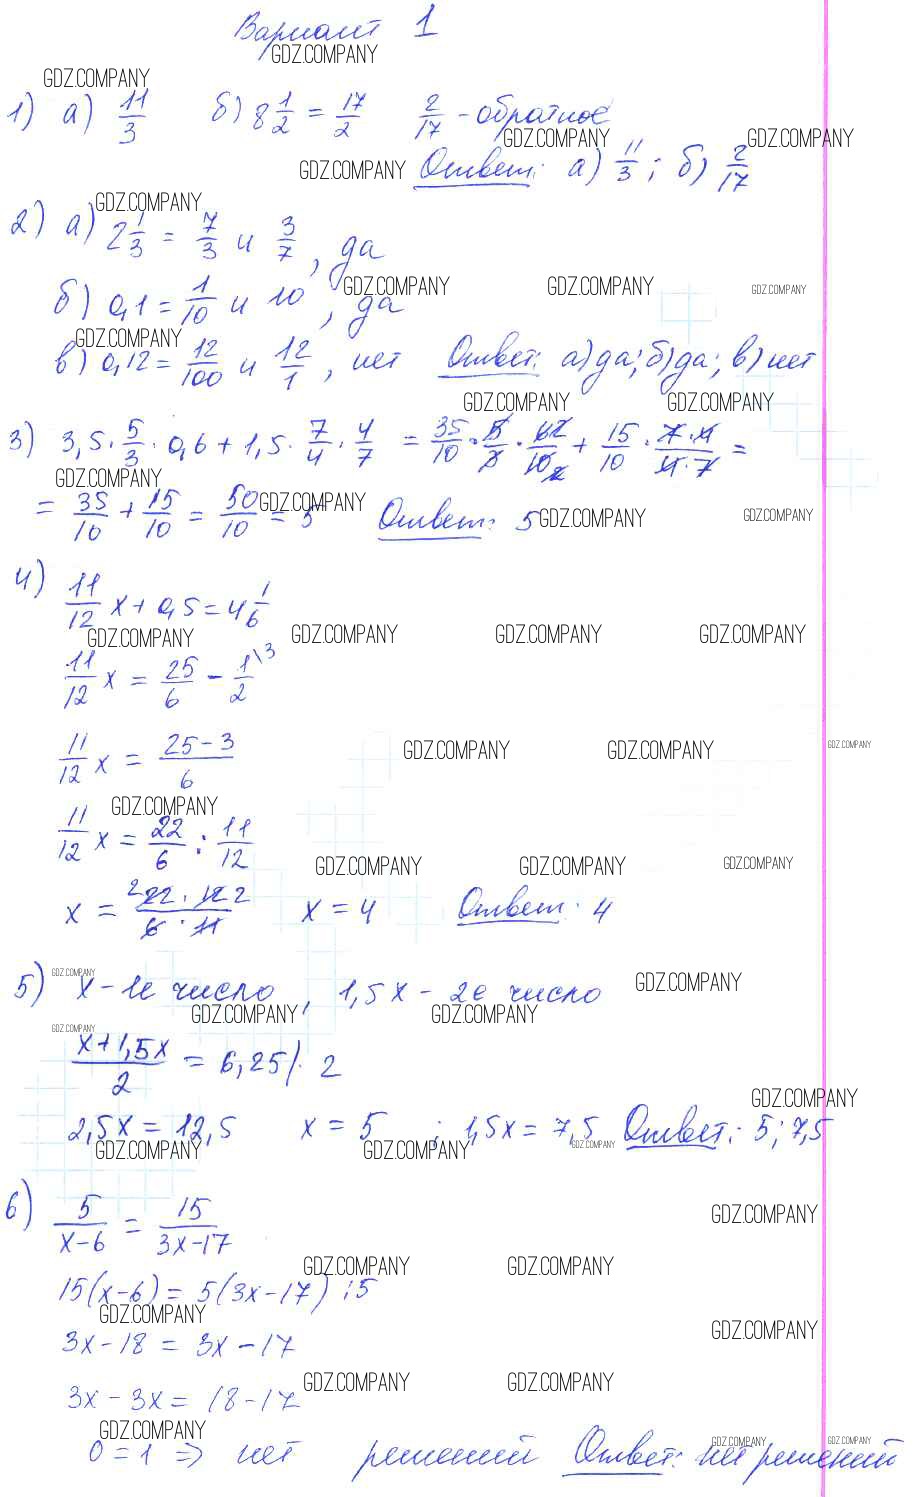 Вариант 1
1) а) 11/3 б) 8 1/2 = 17/2 2/17 - обратное
Ответ: а) 11/3; б) 2/17
2) а) 2 1/3 = 7/3 и 3/7, да
б) 0,1 = 1/10 и 10, да
в) 0,12 = 12/100 и 12/1, нет Ответ: а) да; б) да; в) нет
3) 3,5 · 5/3 · 0,6 + 1,5 · 7/4 · 4/7 = 35/10 · 5/3 · 6/10 + 15/10 · 7·4/4·7 =
= 35/10 + 15/10 = 50/10 = 5 Ответ: 5
4) 11/12 x + 0,5 = 4 1/6
11/12 x = 25/6 - 1/2 \3
11/12 x = 25-3/6
11/12 x = 22/6 : 11/12
x = 2 22 · 12 2/6 · 11 x = 4 Ответ: 4
5) x - 1е число, 1,5x - 2е число
x+1,5x/2 = 6,25 |· 2
2,5x = 12,5 x = 5 ; 1,5x = 7,5 Ответ: 5; 7,5
6) 5/x-6 = 15/3x-17
15(x-6) = 5(3x-17) :5
3x-18 = 3x-17
3x-3x = 18-17
0=1 => нет решений Ответ: нет решений
GDZ.COMPANY